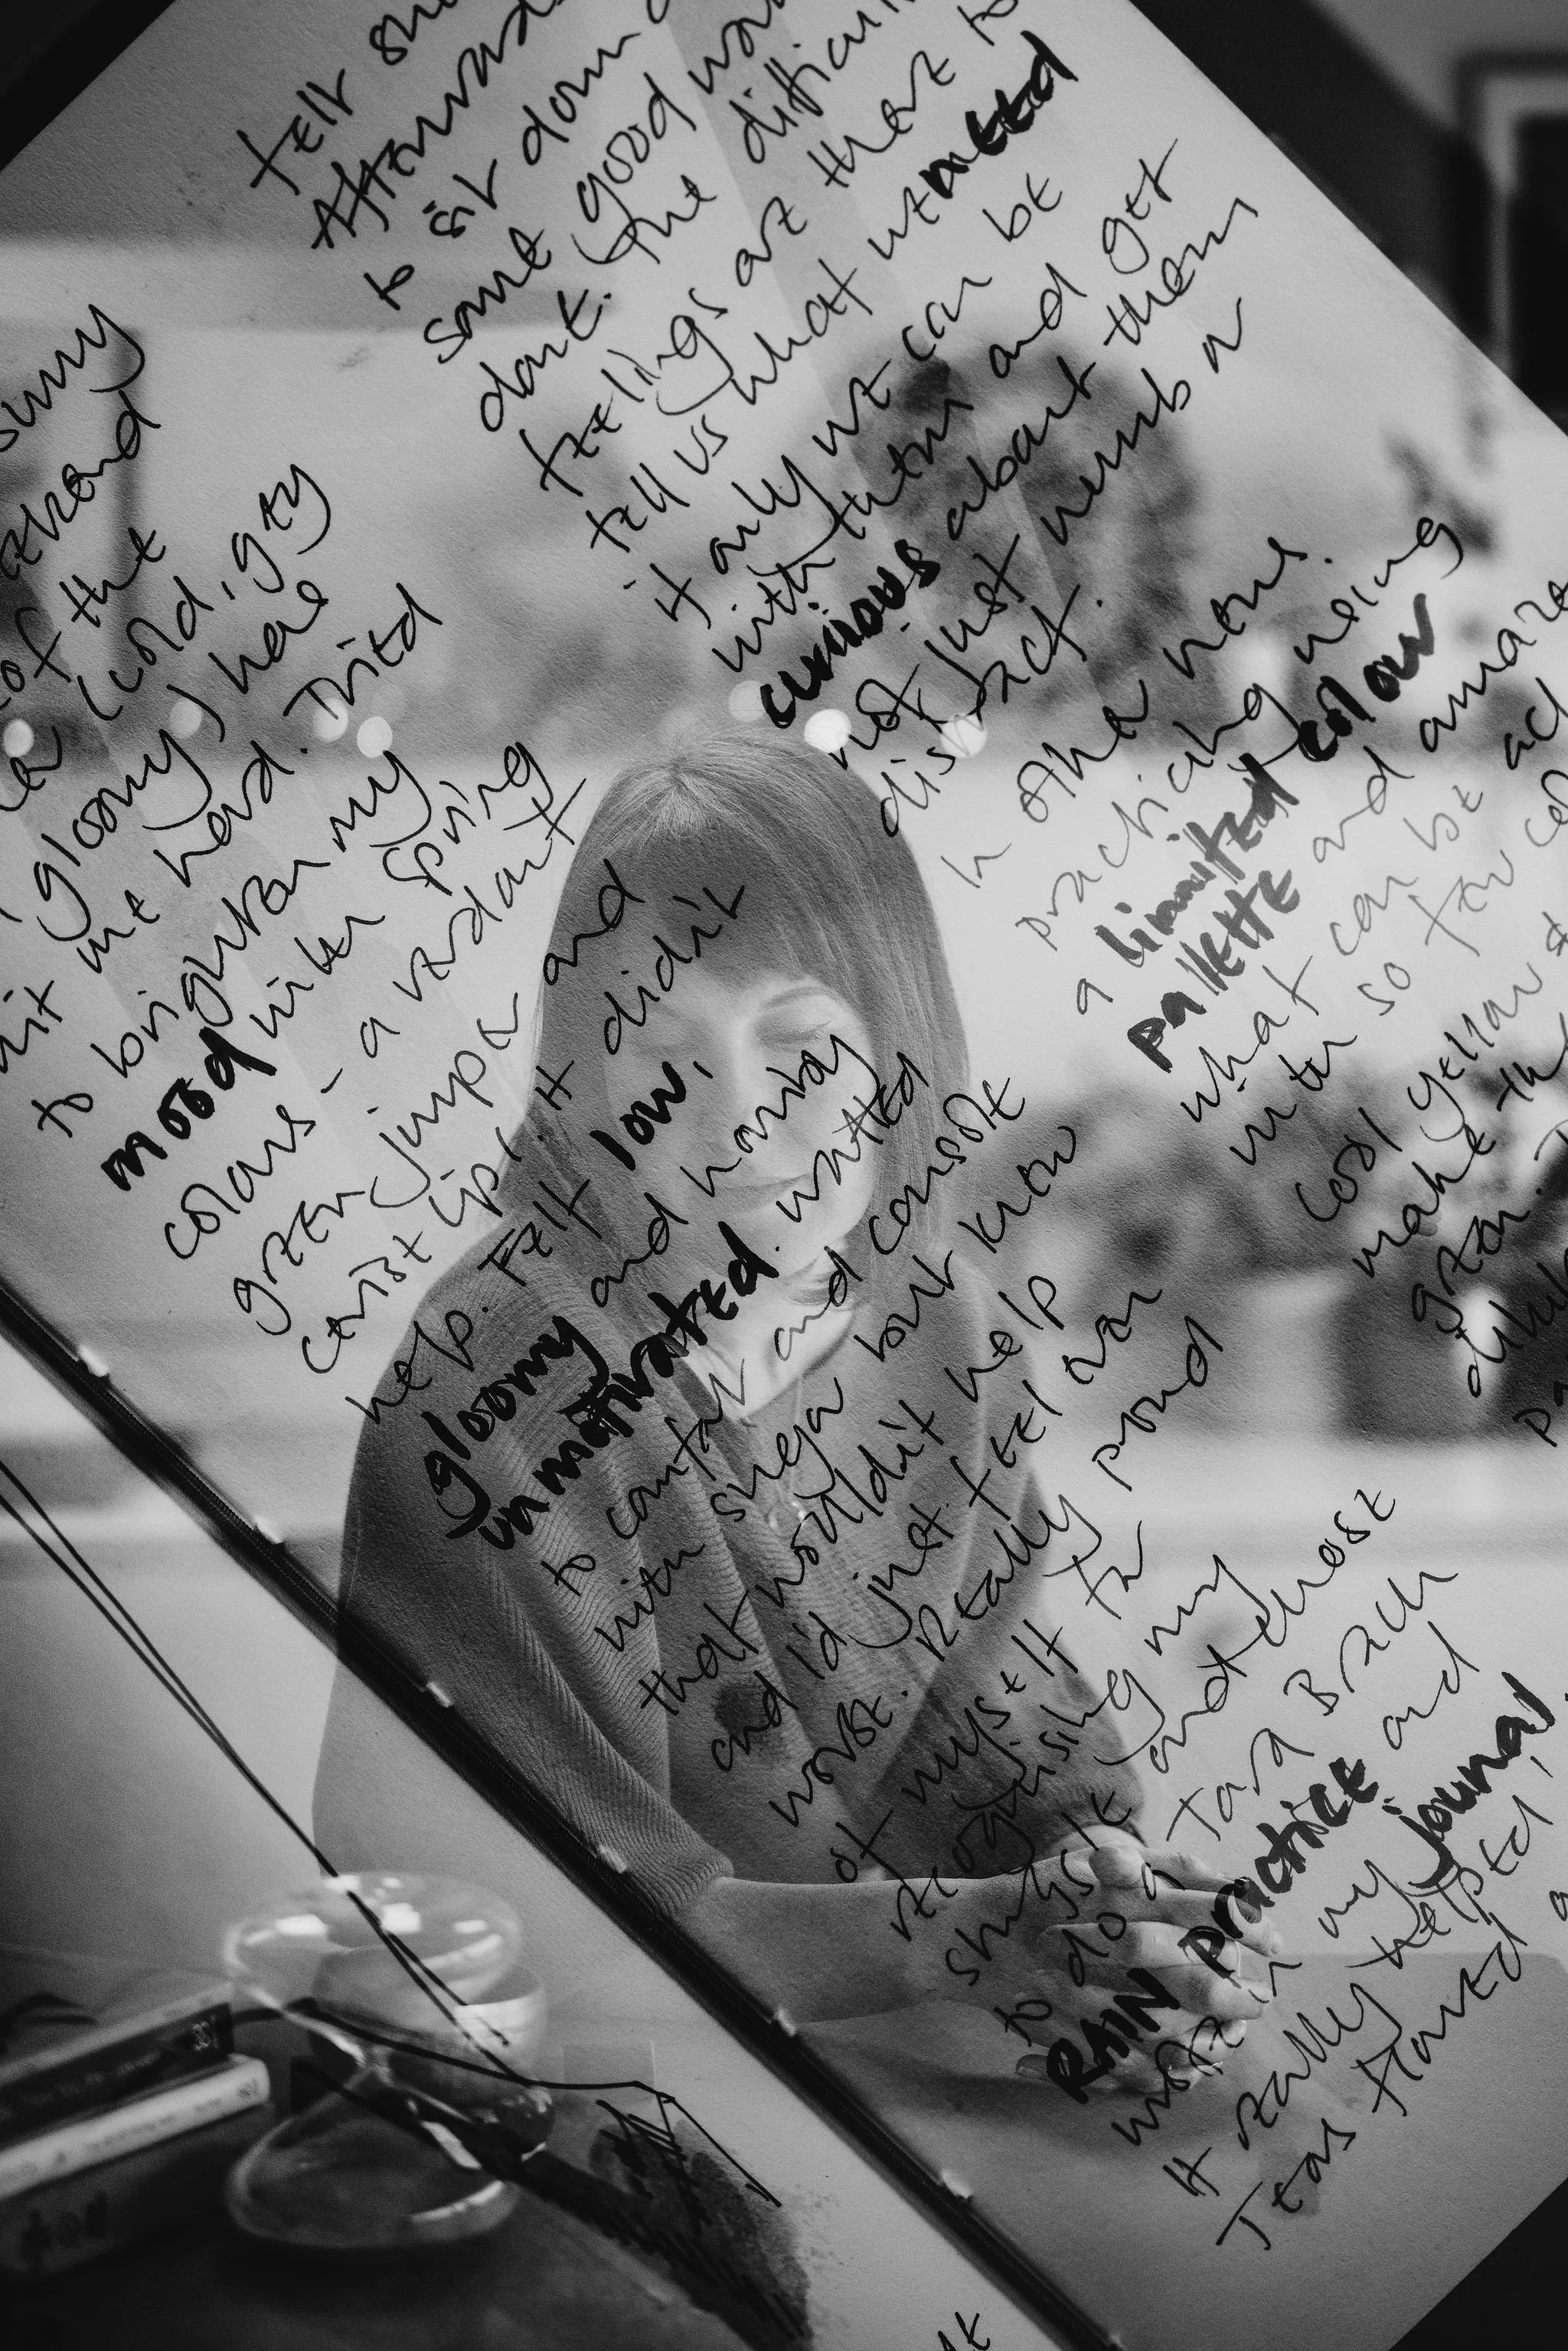 sunny
of the
(cold, grey
gloomy) have
hit me hard. Tried
to brighten my
mood with spring
colours - a verdant
green jumper and
cerise lips. It didn't
help. Felt low,
gloomy and horribly
unmotivated. wanted
to comfort and console
with sugar but know
that wouldn't help
and I'd just feel even
worse. Really proud
of myself for
recognising my
struggle and chose
to do a Tara Brach
RAIN practice and
write in my journal
It really helped,
Tears flowed
felt
Afterwards
to sit down
some good
done. The difficult
feelings are there to
tell us what we need
if only we can be
with them and get
curious about them
not just numb or
distract.
In other news.
practicing using
a limited colour
pallette and
what can be
with so few
cool yellow &
make the
green.